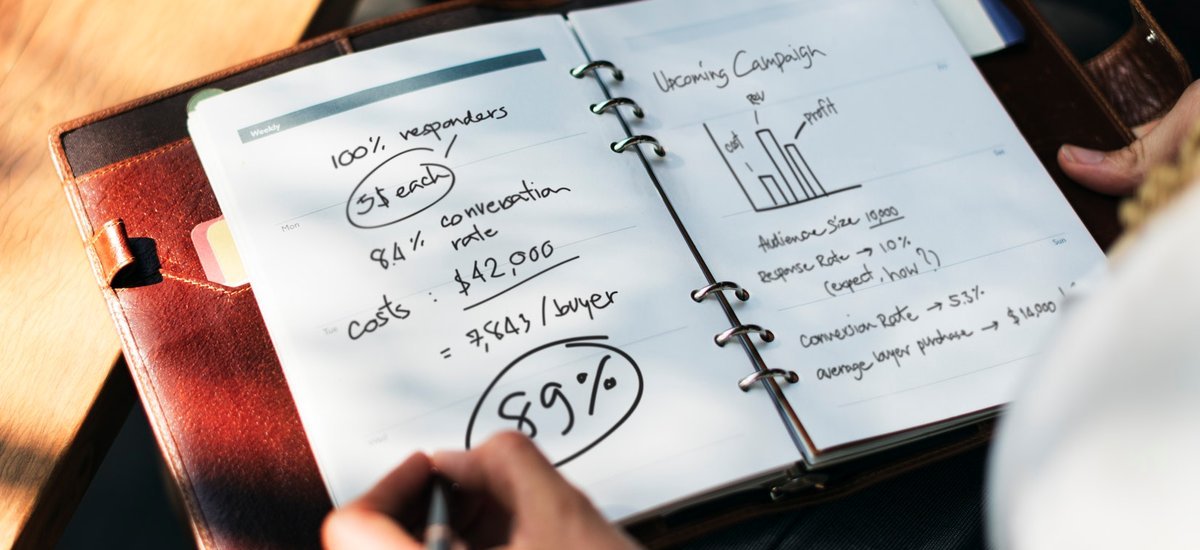 Weekly
100% responders
5$ each
Mon
8.4% conversation
rate
Tue
costs : $42,000
= 7,843 / buyer
89%
Upcoming Campaign
Rev
cost
Profit
Sat
Audience Size 10,000
Response Rate → 10%
(expect, how?)
Sun
Conversion Rate → 5.3%
average buyer purchase → $14,000